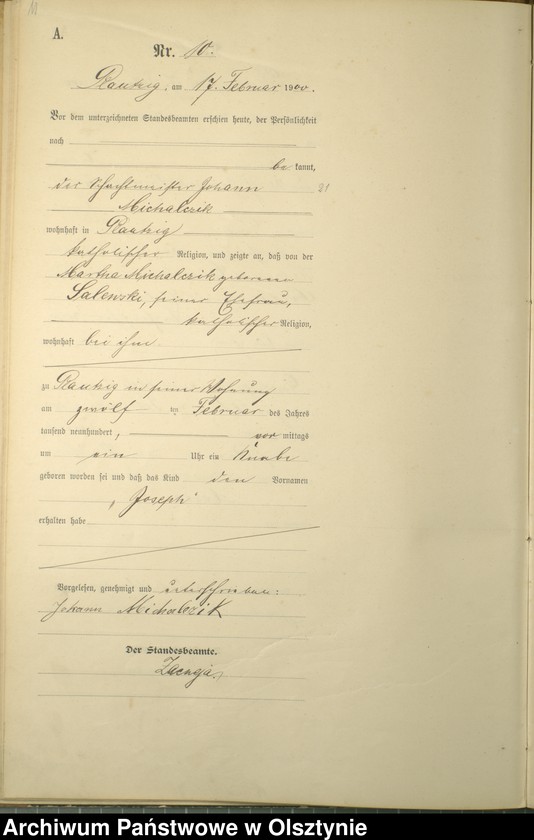 A.
Nr. 10.
am 17. Februar 1900.
Vor dem unterzeichneten Standesbeamten erschien heute, der Persönlichkeit
nach
be kannt,
der Schachtmeister Johann
21
Michalczik
wohnhaft in
katholischer Religion, und zeigte an, daß von der
Martha Michalczik geborenen
Salewski, seiner Ehefrau,
katholischer Religion,
wohnhaft bei ihm
zu in seiner Wohnung
am zwölf ten Februar des Jahres
tausend neunhundert, vor mittags
um ein Uhr ein Knabe
geboren worden sei und daß das Kind den Vornamen
"Joseph"
erhalten habe
Vorgelesen, genehmigt und unterschrieben:
Johann Michalczik
Der Standesbeamte.
Archiwum Państwowe w Olsztynie